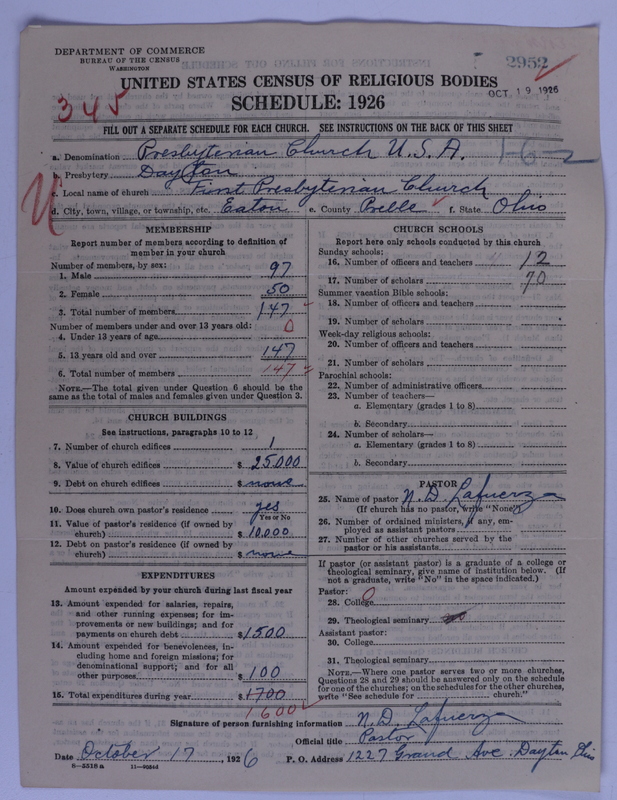 DEPARTMENT OF COMMERCE
BUREAU OF THE CENSUS
WASHINGTON
2952
UNITED STATES CENSUS OF RELIGIOUS BODIES
OCT 19 1926
345
SCHEDULE: 1926
FILL OUT A SEPARATE SCHEDULE FOR EACH CHURCH. SEE INSTRUCTIONS ON THE BACK OF THIS SHEET
a. Denomination Presbyterian Church U.S.A. 1-6-2
b. Presbytery Dayton
c. Local name of church First Presbyterian Church
d. City, town, village, or township, etc. Eaton e. County Preble f. State Ohio
MEMBERSHIP
Report number of members according to definition of
member in your church
Number of members, by sex:
1. Male 97
2. Female 50
3. Total number of members 147
Number of members under and over 13 years old:
4. Under 13 years of age 0
5. 13 years old and over 147
6. Total number of members 147
NOTE.—The total given under Question 6 should be the
same as the total of males and females given under Question 3.
CHURCH BUILDINGS
See instructions, paragraphs 10 to 12
7. Number of church edifices 1
8. Value of church edifices $ 25000
9. Debt on church edifices $ none
10. Does church own pastor's residence yes
Yes or No
11. Value of pastor's residence (if owned by
church) $ 10,000
12. Debt on pastor's residence (if owned by
church) $ none
EXPENDITURES
Amount expended by your church during last fiscal year
13. Amount expended for salaries, repairs,
and other running expenses; for im-
provements or new buildings; and for
payments on church debt $ 1500
14. Amount expended for benevolences, in-
cluding home and foreign missions; for
denominational support; and for all
other purposes $ 100
15. Total expenditures during year $ 1700
1600
CHURCH SCHOOLS
Report here only schools conducted by this church
Sunday schools:
16. Number of officers and teachers 12
17. Number of scholars 70
Summer vacation Bible schools:
18. Number of officers and teachers
19. Number of scholars
Week-day religious schools:
20. Number of officers and teachers
21. Number of scholars
Parochial schools:
22. Number of administrative officers
23. Number of teachers—
a. Elementary (grades 1 to 8)
b. Secondary
24. Number of scholars—
a. Elementary (grades 1 to 8)
b. Secondary
PASTOR
25. Name of pastor N. D. Lafuerza
(If church has no pastor, write "None")
26. Number of ordained ministers, if any, em-
ployed as assistant pastors
27. Number of other churches served by the
pastor or his assistants
If pastor (or assistant pastor) is a graduate of a college or
theological seminary, give name of institution below. (If
not a graduate, write "No" in the space indicated.)
Pastor:
28. College
29. Theological seminary
Assistant pastor:
30. College
31. Theological seminary
NOTE.—Where one pastor serves two or more churches,
Questions 28 and 29 should be answered only on the schedule
for one of the churches; on the schedules for the other churches,
write "See schedule for church."
Signature of person furnishing information N. D. Lafuerza
Official title Pastor
Date October 17, 1926 P. O. Address 1227 Grand Ave. Dayton Ohio
8-5518a